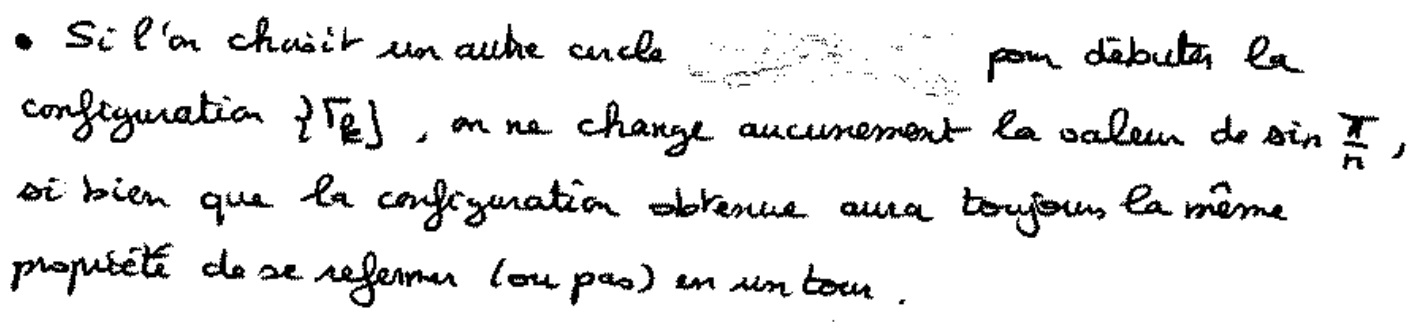 • Si l'on choisit un autre cercle pour débuter la
configuration {Γ_k}, on ne change aucunement la valeur de sin π/n,
si bien que la configuration obtenue aura toujours la même
propriété de se refermer (ou pas) en un tour.